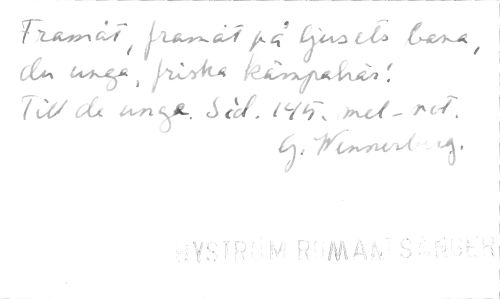 Framåt, framåt på ljusets bana,
du unga, friska kämpahär!
Till de unga. Sid. 145. mel-not.
G. Wennerberg.
NYSTRÖM ROMAN SÅNGER